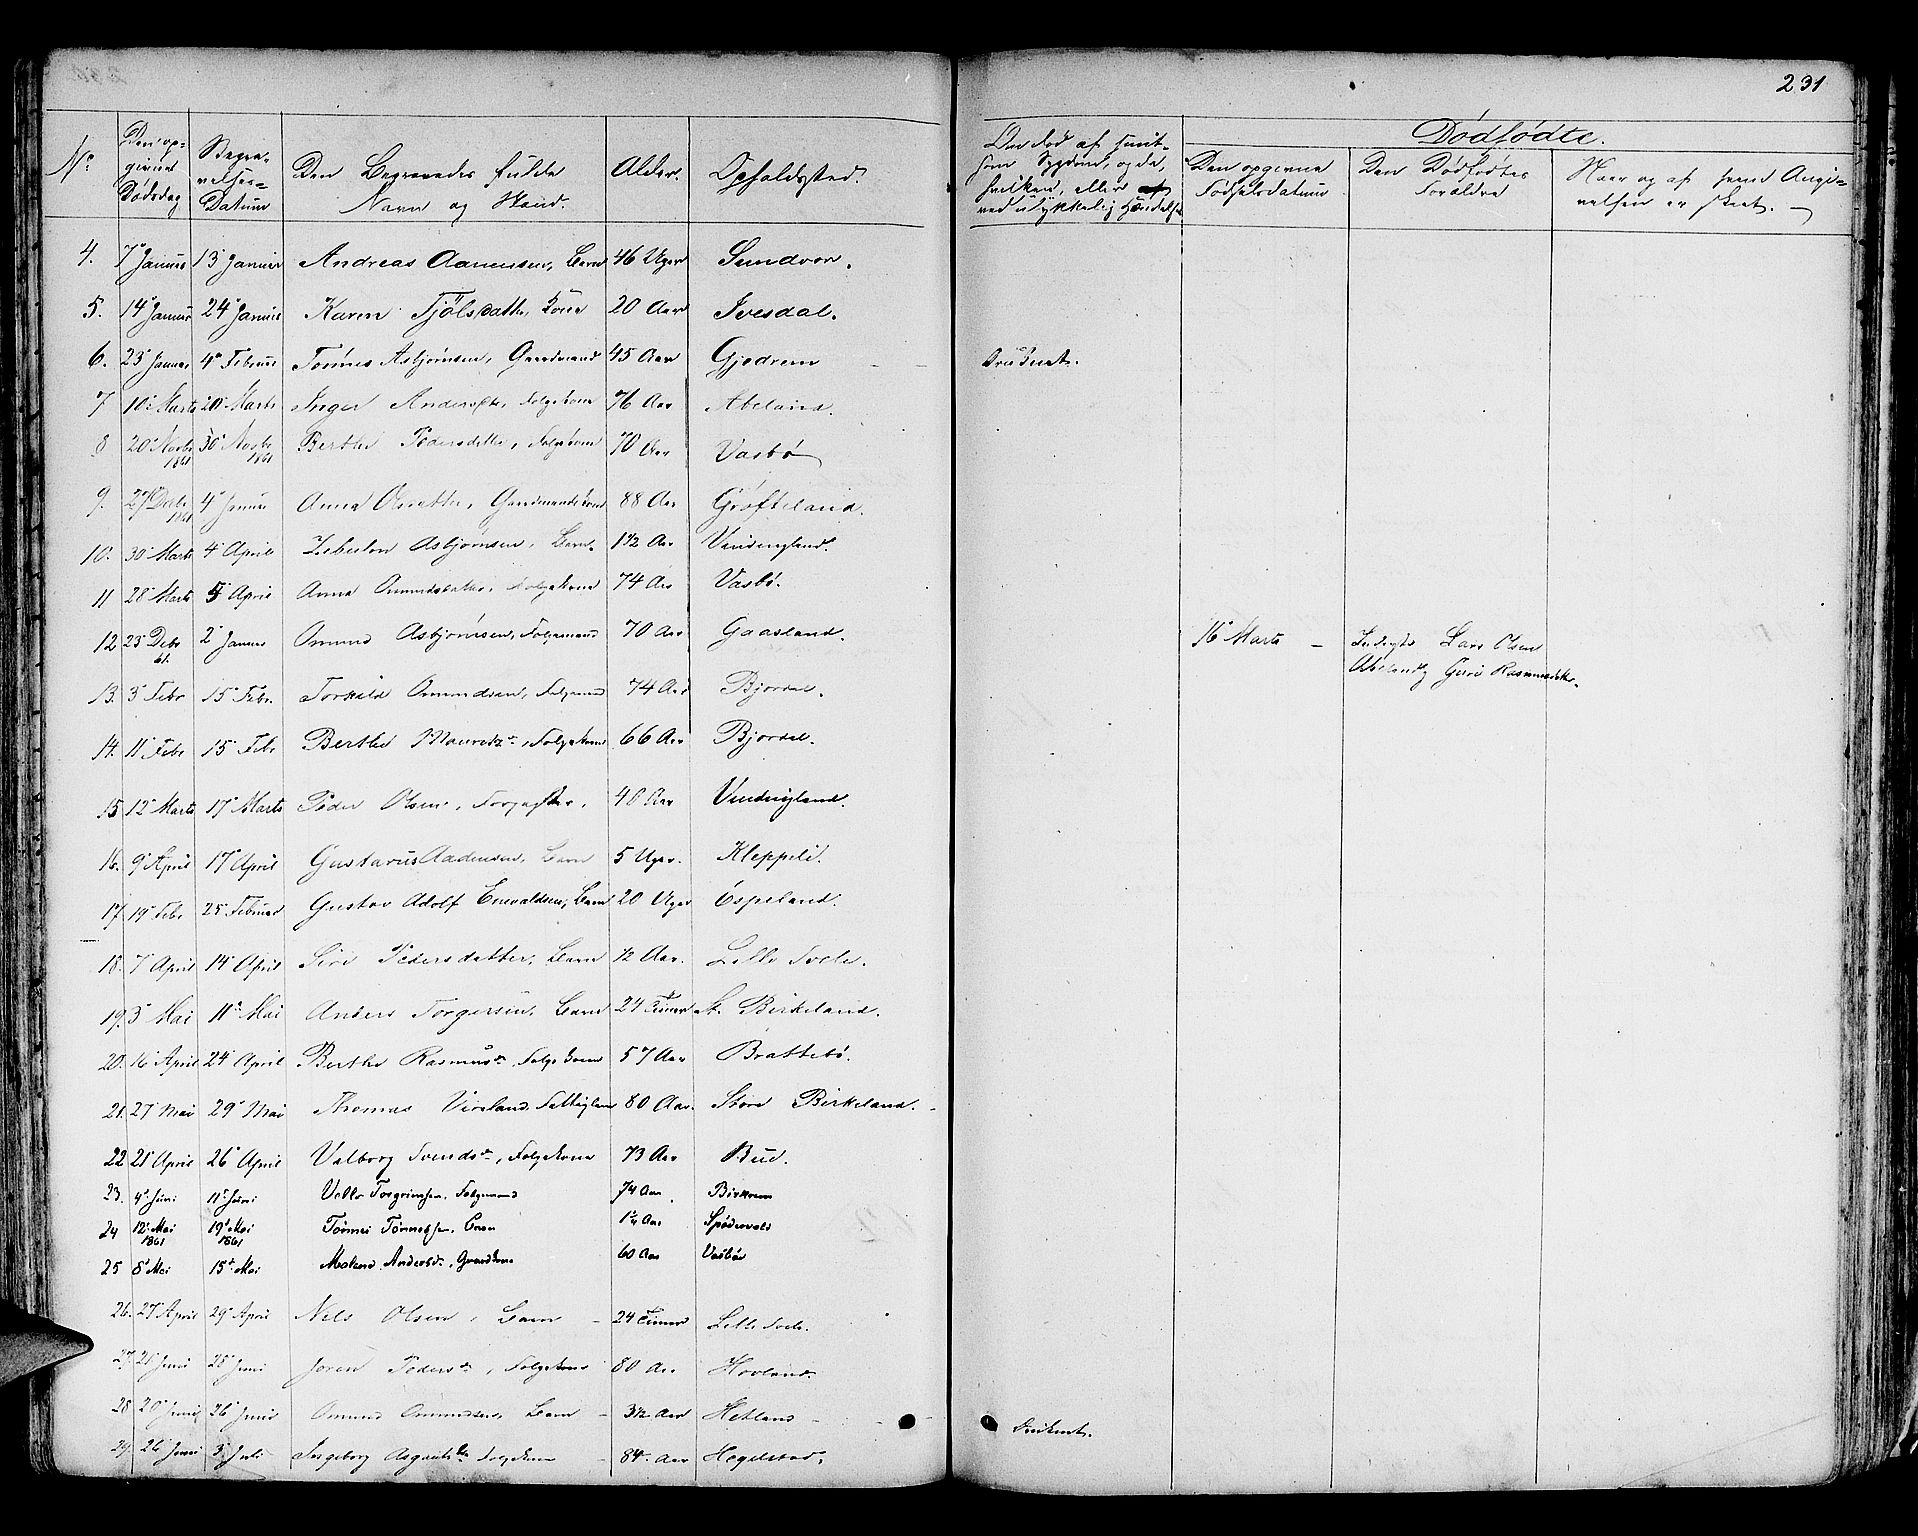 231
No
Den op-
givne
Dødsdag
Begra-
velses-
Datum
Den Begravedes fulde
Navn og Stand.
Alder.
Opholdssted.
Om død af smit-
som Sygdom, og da,
hvilken, eller
ved ulykkelig Hændelse
Dødfødte.
Den opgivne
Fødselsdatum
Den Dødfødtes
Forældre
Naar og af hvem Angi-
velsen er skeet.
4. 7de Januar 13 Januar Andreas Aanensen, Barn 46 Uger Sundvor.
5. 14de Januar 24 Januar Karen Fjölsdatter, Kone 20 Aar Ivesdal.
6. 23 Januar 4de Februar Tönnes Asbjørnsen, Gaardmand 45 Aar Gjedrem Drucknet.
7 10 Marts 20 Marts Inger Andersdtr, Folgekone 76 Aar Abeland.
8 20 Novbr 1861 30 Novbr 1861 Berthe Pedersdatter, Folgekone 70 Aar Vasbø
9. 27 Decbr 1861 4 Januar Anna Olsdatter, Gaardmandskone 88 Aar Grøfteland.
10. 30 Marts 4 April Zebulon Asbjørnsen, Barn. 1 1/2 Aar Vindingland.
11 28 Marts 5 April Anna Omundsdatter, Folgekone 74 Aar Vasbø.
12 23 Debr 61. 2 Januar Omund Asbjørnsen, Folgemand 70 Aar Gaasland.
16 Marts – Inderste Lars Olsen
Abeland og Guri Rasmusdatter.
13. 3 Febr 15 Febr. Torkild Omundsen, Folgemand 74 Aar Bjordal.
14. 11 Febr 15 Febr Berthe Mauritzdr, Folgekone 66 Aar Bjordal.
15 12 Marts 17 Marts Peder Olsen, 40 Aar Vindingland.
16. 9 April 17 April Gustavus Aadensen, Barn 5 Uger. Kleppeli.
17. 19 Febr 25 Februar Gustav Adolf Enevaldsen, Barn 20 Uger Espeland.
18. 7 April 14 April Siri Pedersdatter, Barn 12 Aar. Lille Svele.
19. 3 Mai 11 Mai Anders Torgersen, Barn 24 Timer St. Birkeland.
20. 16 April 24 April Berthe Rasmusdr, Folgekone 57 Aar Brattebø.
21. 27 Mai 29 Mai Thomas Vireland, Fattiglem 80 Aar. Store Birkeland.
22 21 April 26 April Valborg Svendsdr, Folgekone 73 Aar Bue.
23. 4de Juni 11te Juni Torgrimsen, Folgemand 74 Aar Birkrem
24 12 Mai 1861 19 Mai 1861 Tønnes Tønnessen, 1/4 Aar Spødervold
25 8de Mai 15de Mai Malene Andersdr, Gaardkone 60 Aar Vasbø
26. 27 April 29 April Nils Olsen, Barn – 24 Timer Lille Svele.
27. 21 Juni 28 Juni Joren Pedersdr, Folgekone 80 Aar Hovland.
28 20 Juni 26 Juni Omund Omundsen, Barn – 3 1/2 Aar Hetland – Druknet.
29. 26 Juni 3 Juli Ingeborg Asgautsdr Folgekone – 84 Aar Hegelstad.